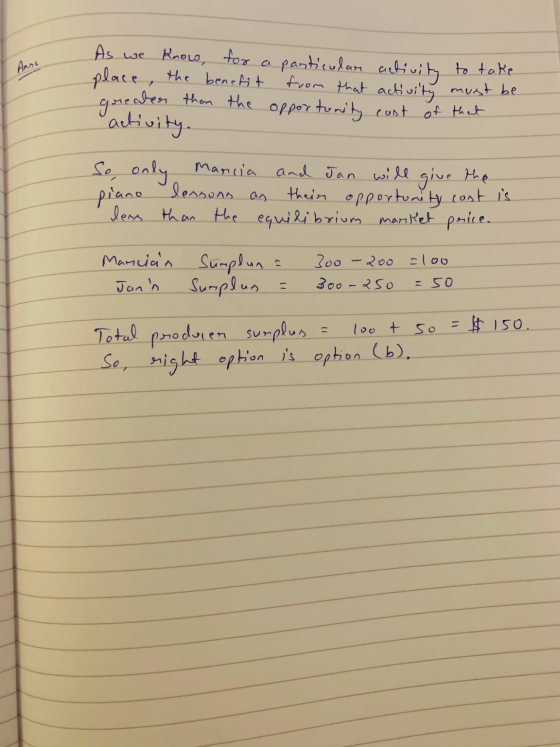 Ans:
As we know, for a particular activity to take
place, the benefit from that activity must be
greater than the opportunity cost of that
activity.
So, only Marcia and Jan will give the
piano lessons as their opportunity cost is
less than the equilibrium market price.
Marcia's Surplus = 300 - 200 = 100
Jan's Surplus = 300 - 250 = 50
Total producer surplus = 100 + 50 = $ 150.
So, right option is option (b).